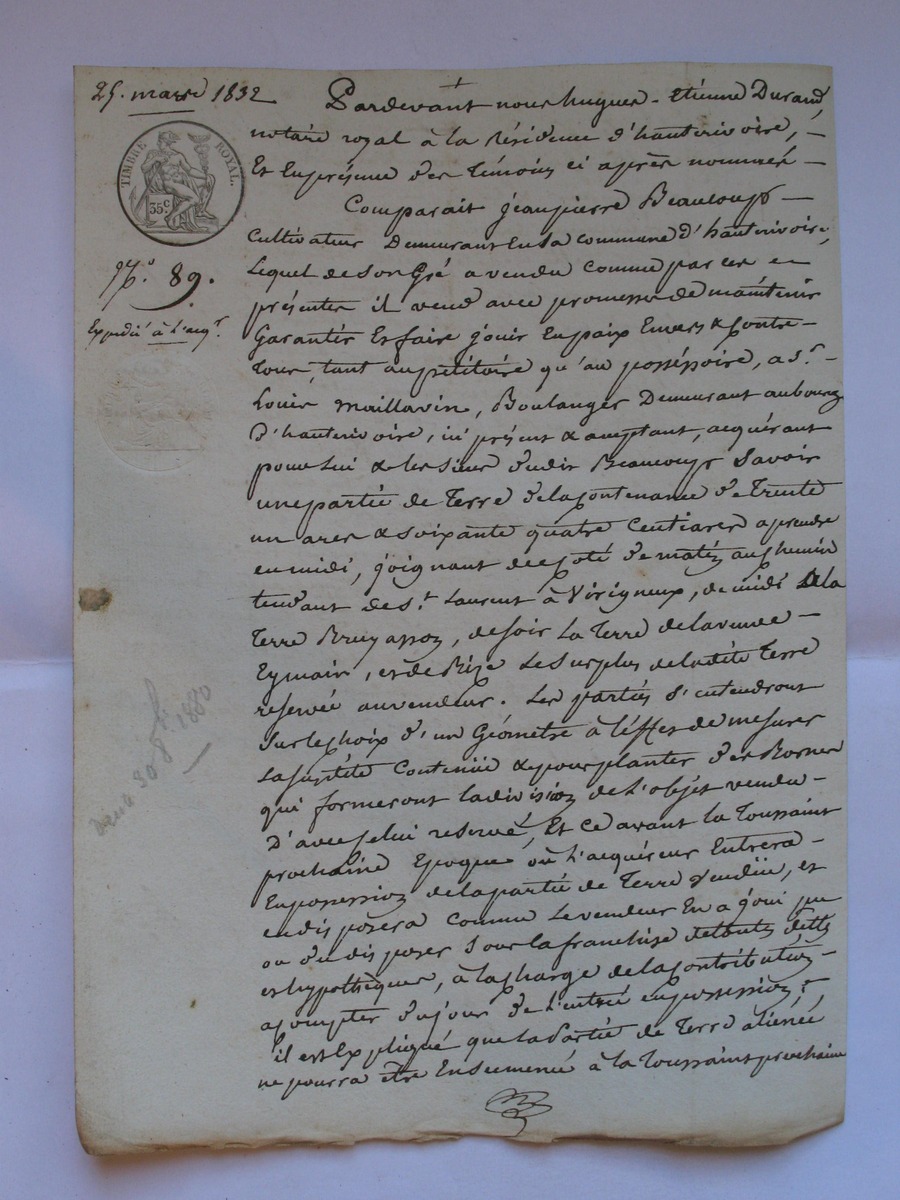 25. mars 1832
TIMBRE ROYAL.
35 c
N.º 89.
Expedié à L'acq.r
Pardevant nous hugues - Etienne Durand,
notaire royal à la Résidence d'hauterivoire,
Et En présence des Témoins ci après nommés
Comparait jeanpierre Beaucoup
Cultivateur Demeurant En la commune d'hauterivoire,
Lequel de son Gré a vendu comme par ces
présentes il vend avec promesse de maintenir
Garantir Et faire jouir En paix Envers & Contre
tous, tant au pétitoire qu'au posséssoire, a S.r
Louis maillavin, Boulanger Demeurant au bourg
D'hauterivoire, ici présent & acceptant, acquérant
pour Lui & les siens dudit Beaucoup Savoir
une partie de Terre de la Contenance de Trente
un ares & soixante quatre Centiares a prendre
en midi, joignant de Coté de matin au Chemin
tendant de S.t Laurent à Virigneux, de midi De la
Terre Bruyasson, de soir La Terre de la veuve
Eymain, et de Bize Le surplus de la dite Terre
reservée au vendeur. Les parties s'entendront
sur le Choix d'un Géomètre à l'effet de mesurer
La susdite Contenüe & pour planter des Bornes
qui formeront la division de L'objet vendu
D'avec Celui reservé, Et ce avant la Toussaint
prochaine Epoque où L'acquéreur Entrera
En possession de la partie de Terre vendüe, et
en disposera comme Le vendeur En a joui pu
ou dû disposer sous la franchise de toutes dettes
et hypothèques, à la Charge de la Contribution
a Compter du jour de L'entrée en possession;
il est Expliqué que la Partie de Terre aliénée
ne pourra être Ensemencée à la Toussaint prochaine
30 8bre 1880